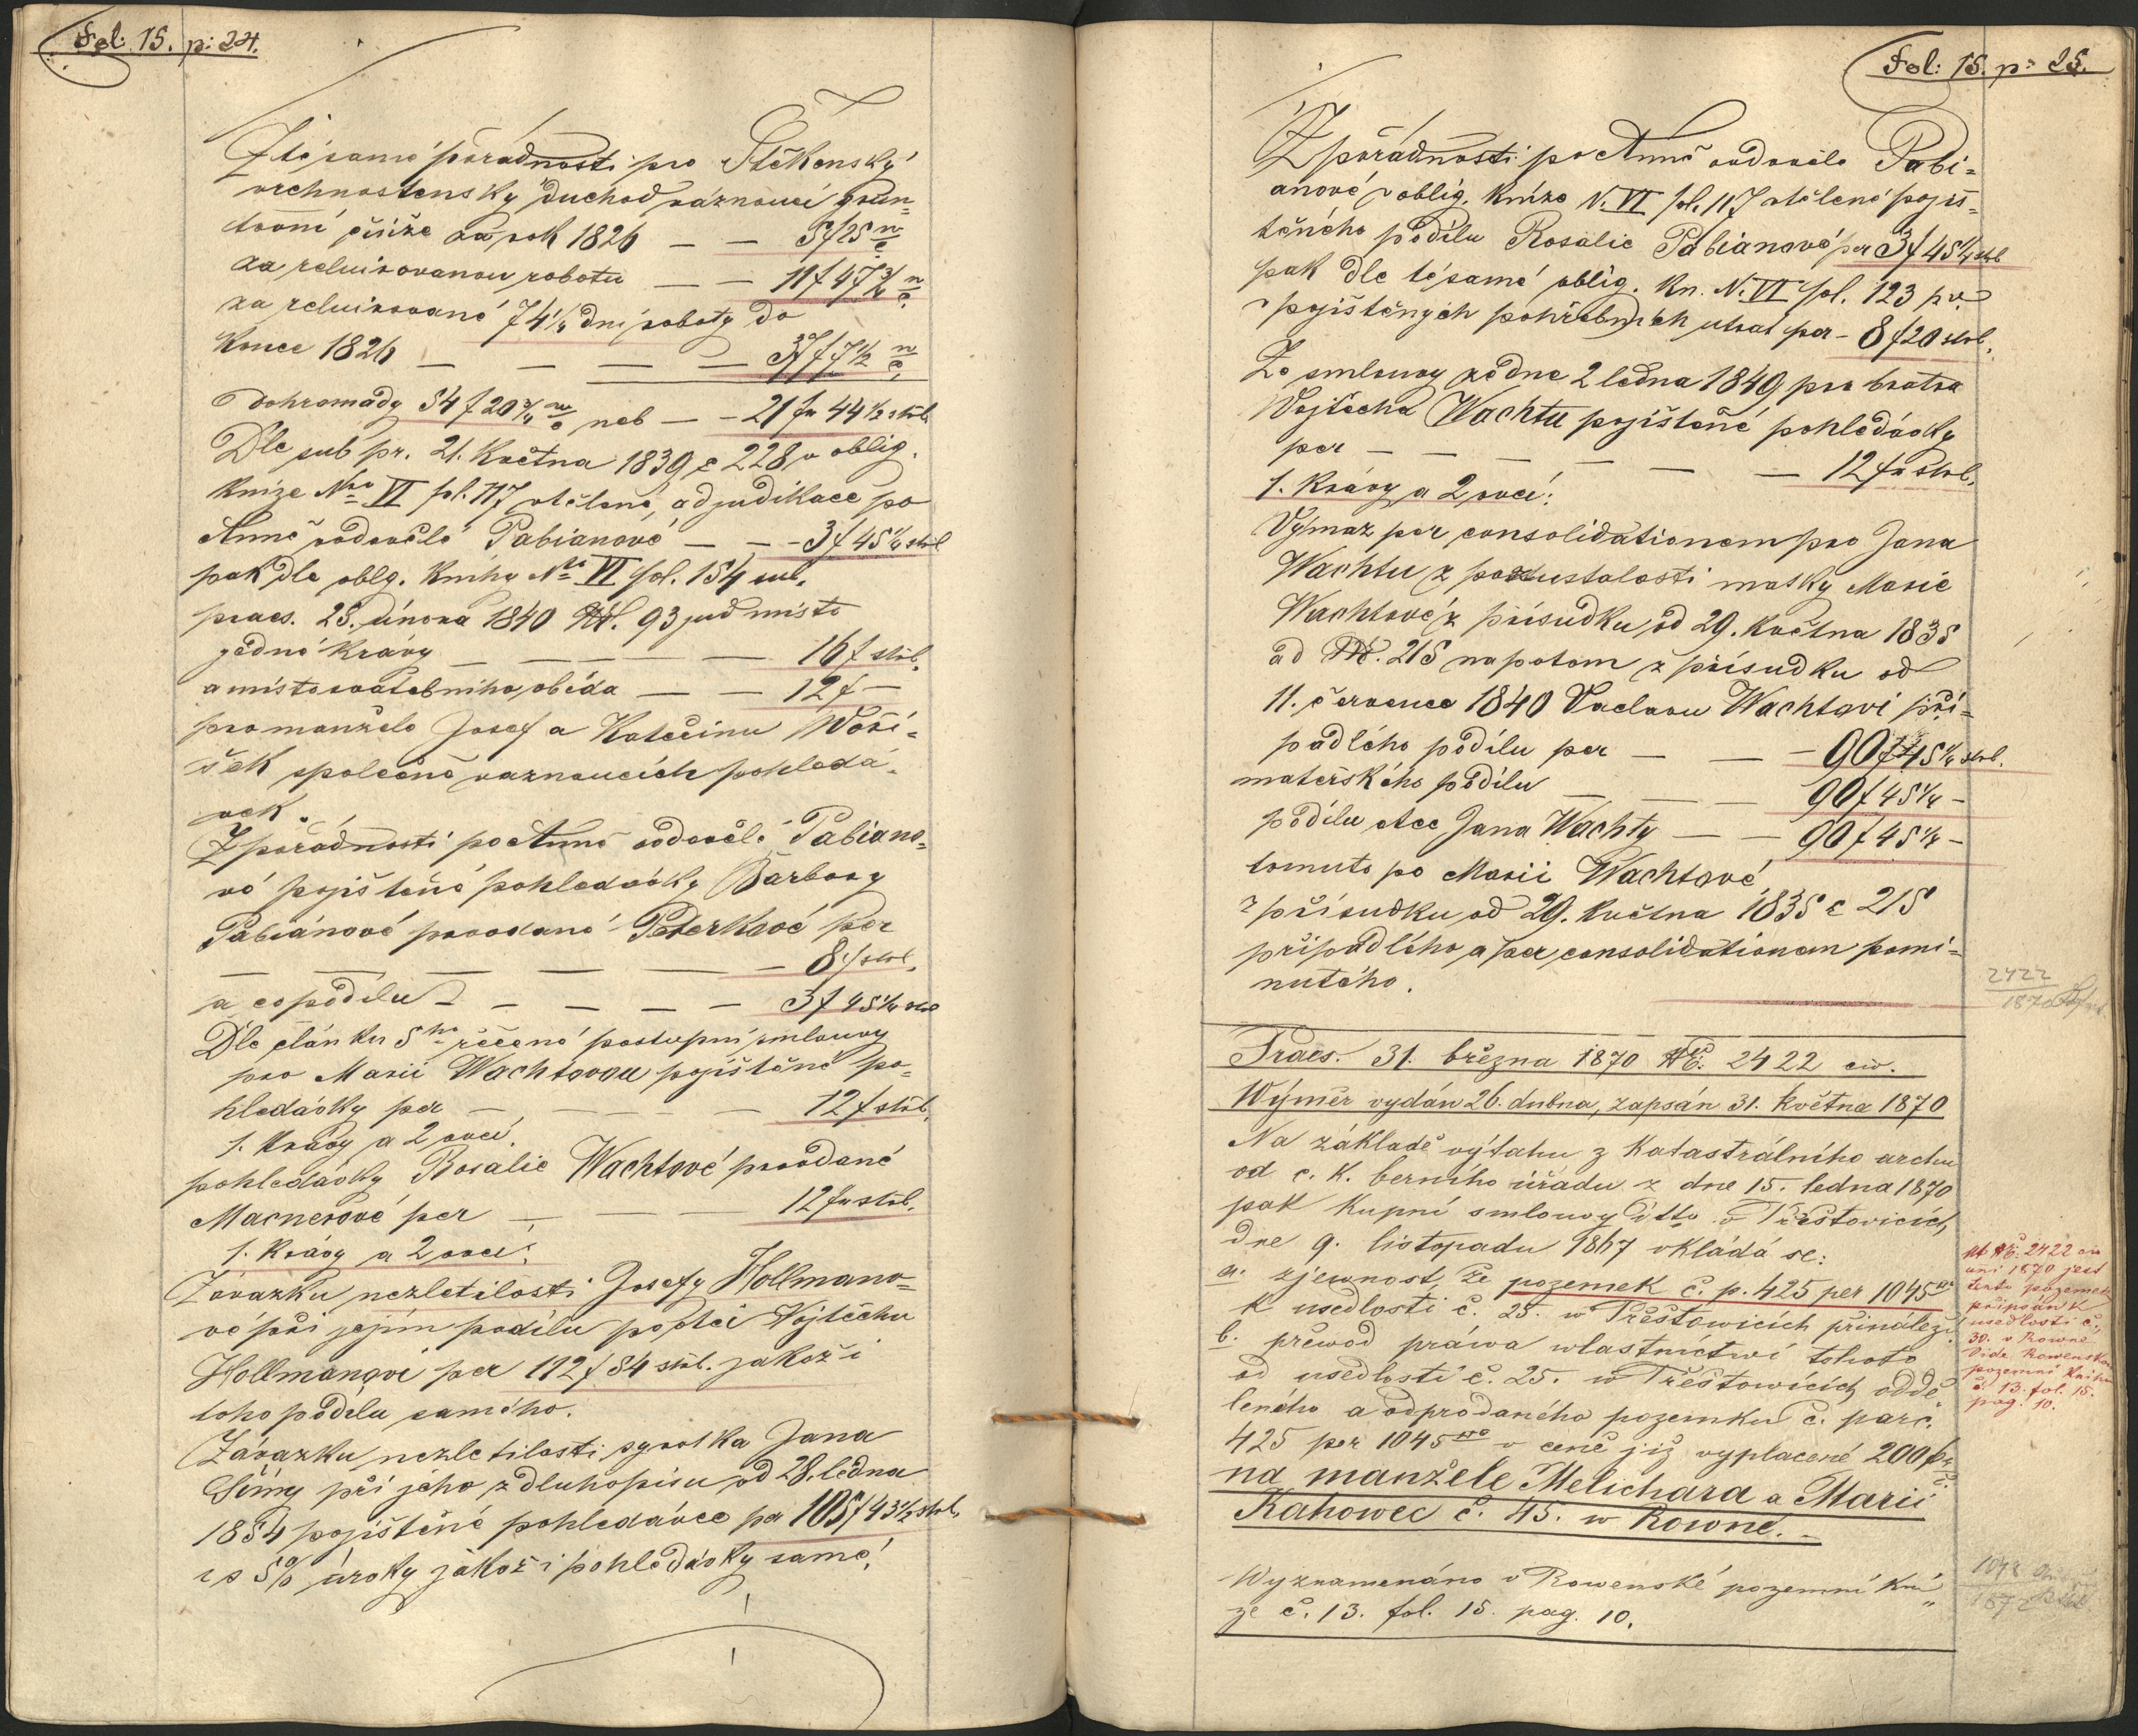 Fol: 15. p: 24.
Z té samé pořádnosti pro Štěkenský
vrchnostenský důchod váznoucí grun-
tovní činže za rok 1826 — — 5 f 25
za reluirovanou robotu — — 11 f 47 3/4
za reluirované 74 1/4 dní roboty do
konce 1826 — — — — 37 f 7 1/2
Dohromady 54 f 20 3/4 neb — — 21 fr 44 1/2 stříb.
Dle sub pr. 21. května 1839 č 228 v oblig.
knize Nro VI fol. 117 vtělené, adjudikace po
Anně ovdovělé Pabianové — — 3 f 45 1/4 stříb
pak dle oblg. knihy Nro VI fol. 154 sub.
praes. 25. února 1840 93 jud místo
jedné krávy — — — — 16 f stříb.
a místo svatebního oběda — — 12 f —
pro manžele Josef a Kateřinu Woří-
šek společně váznoucích pohledá-
vek.
Z pořádnosti po Anně ovdovělé Pabiano-
vé pojištěné pohledávky Barbory
Pabiánové provdané Peterkové per
— — — — — — 8 f stříb.
a co podílu — — — — 3 f 45 1/4 stříb
Dle článku 5ho řečené postupní smlouvy
pro Marii Wachtovou pojištěné po-
hledávky per — — — — 12 f stříb.
1. krávy a 2 ovcí.
pohledávky Rosalie Wachtové provdané
Macnerové per — — — 12 fr stříb.
1. krávy a 2 ovcí.
Závazku nezletilosti Josefy Hollmano-
vé při jejím podílu po otci Vojtěchu
Hollmanovi per 112 f 54 stříb. jakož i
toho podílu samého.
Závazku nezletilosti syrotka Jana
Šímy při jeho z dluhopisu od 28. ledna
1854 pojištěné pohledávce per 105 f 43 1/2 stříb.
i s 5% úroky jakož i pohledávky samé.
Fol: 15. p: 25.
Z pořádnosti po Anně ovdovělé Pabi-
anové v oblig. knize N. VI fol. 117 vtělené pojiš-
těného podílu Rosalie Pabianové per 3 f 45 1/4 stříb
pak dle té samé oblig. kn. N. VI fol. 123 p. v.
pojištěných pohřebních útrat per - 8 f 20 stříb.
Ze smlouvy ze dne 2 ledna 1849 pro bratra
Vojtěcha Wachtu pojištěné pohledávky
per — — — — — — 12 fr stříb.
1. krávy a 2 ovcí:
Výmaz per consolidationem pro Jana
Wachtu z pozustalosti matky Marie
Wachtové z přísudku od 29. května 1835
ad 215 napotom z přísudku od
11. července 1840 Vaclavu Wachtovi při-
padlého podílu per — — 90 f 45 1/4 stříb.
mateřského podílu — — — 90 f 45 1/4 —
podílu otce Jana Wachty — — 90 f 45 1/4 —
tomuto po Marii Wachtové
z přísudku od 29. května 1835 č 215
připadlého a per consolidationem pomi-
nutého.
2422
1870
Praes. 31. března 1870 2422 civ.
Wýměr vydán 26. dubna, zapsán 31. května 1870
Na základě výtahu z katastrálního archu
od c. k. berního úřadu z dne 15. ledna 1870
pak kupní smlouvy dtto v Třestovicích,
dne 9. listopadu 1867 vkládá se:
a. zjewnost, že pozemek č. p. 425 per 1045
k usedlosti č. 25. w Třešťowicích přináleží
b. přewod práwa wlastnictwí tohoto
od usedlosti č. 25. w Třešťowicích oddě-
leného a odprodaného pozemku č. parc.
425 per 1045 v ceně již vyplacené 200 f
na manžele Melichara a Marii
Kahowec č. 45. w Rowné. —
2422
uni 1870 jest
tento pozemek
připsán k
usedlosti č.
30. v Rowné
Vide Rowenskou
pozemní knihu
č. 13. fol. 15.
pag. 10.
Wyznamenáno v Rowenské pozemní kni-
ze č. 13. fol. 15. pag. 10.